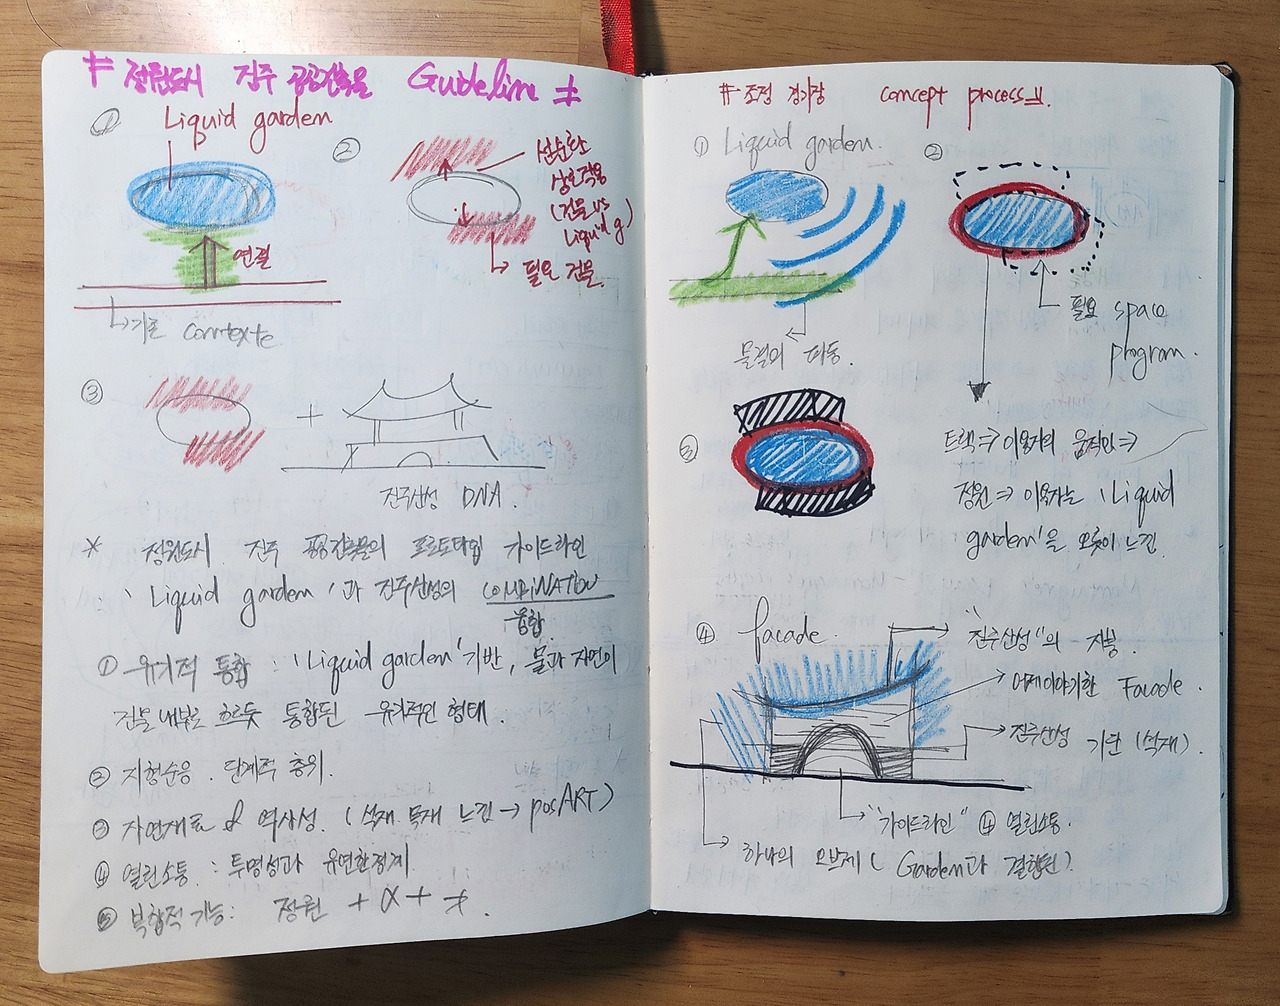 # 정원도시 진주 공공건축물 Guideline #
①
Liquid garden
연결
기존 contexte
②
선순환
상호작용
(건물 vs
liquid g)
필요 건물
③
+
진주산성 DNA.
* 정원도시 진주 공공건축물의 프로토타입 가이드라인
'Liquid garden'과 진주산성의 COMBINATION
융합.
① 유기적 통합 : 'Liquid garden' 기반, 물과 자연이
건물 내부로 흐르듯 통합된 유기적인 형태.
② 지형순응. 단계적 층위.
③ 자연재료 & 역사성. (석재 목재 느낌 → posART)
④ 열린소통 : 투명성과 유연한 경계
⑤ 복합적 기능: 정원 + α +
# 조정 경기장 concept process #.
① Liquid garden.
물결의 파동.
②
필요 space
program.
③
트랙 ⇒ 이용자의 움직임 ⇒
정원 ⇒ 이용자는 'Liquid
garden'을 오롯이 느낌.
④ facade.
"진주산성"의 지붕.
어제 이야기한 Facade.
진주산성 기단 (석재).
"가이드라인" ④ 열린소통.
하나의 오브제 (Garden과 결합된).